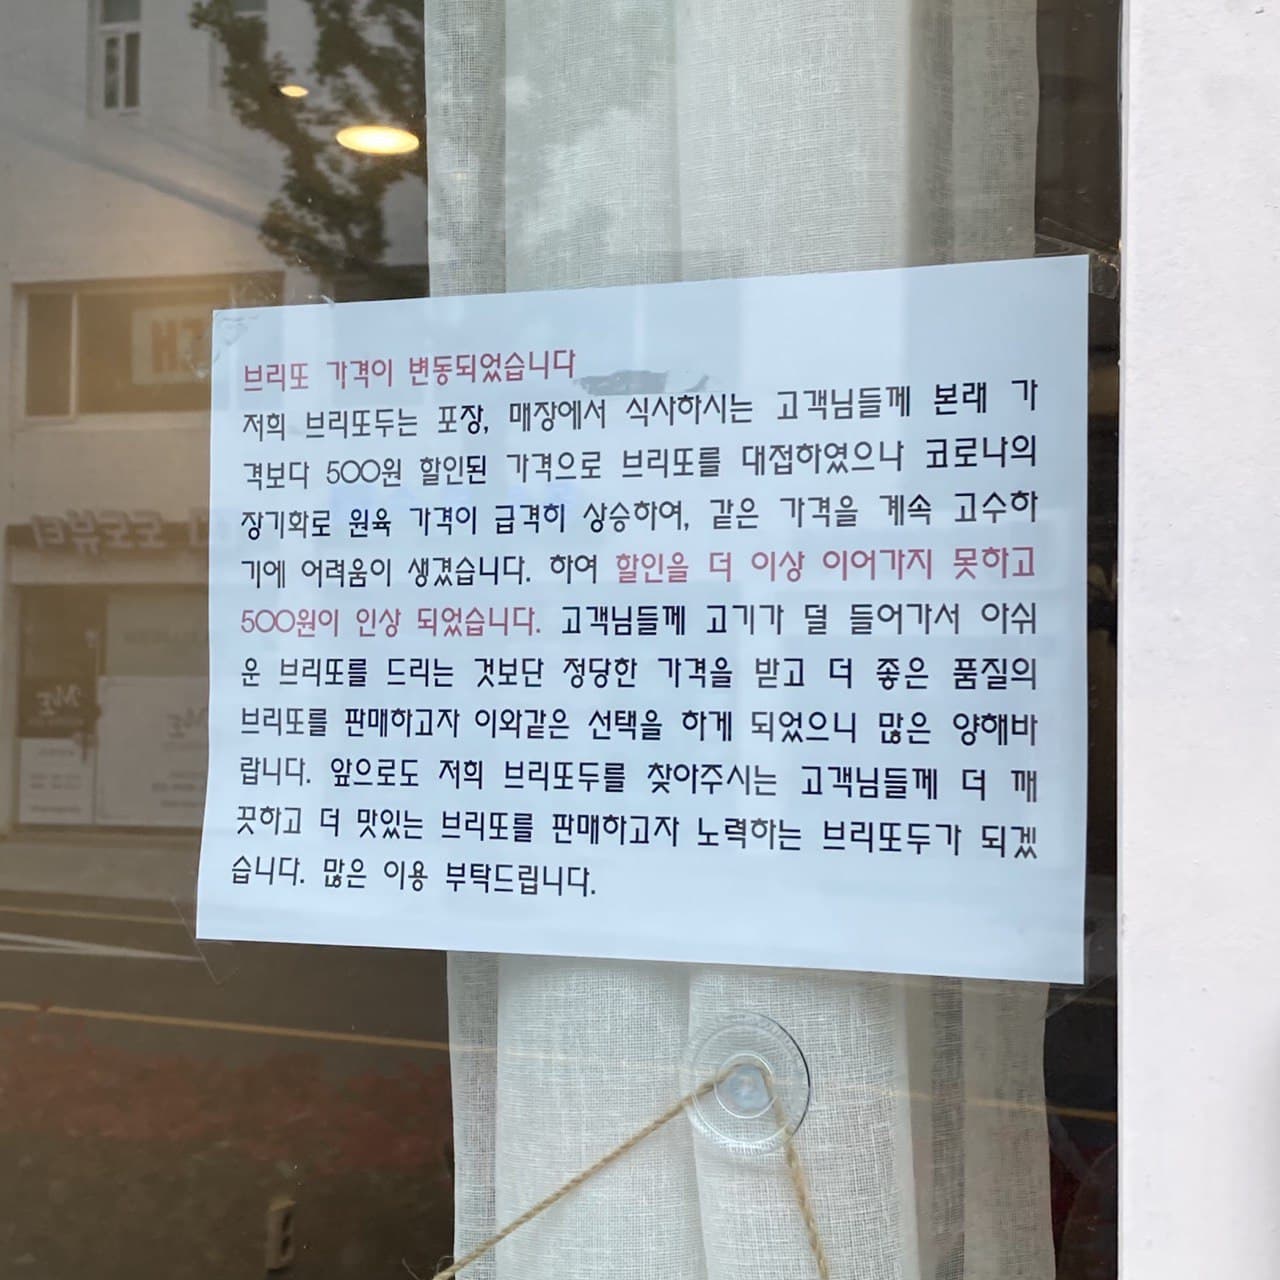 브리또 가격이 변동되었습니다
저희 브리또두는 포장, 매장에서 식사하시는 고객님들께 본래 가
격보다 500원 할인된 가격으로 브리또를 대접하였으나 코로나의
장기화로 원육 가격이 급격히 상승하여, 같은 가격을 계속 고수하
기에 어려움이 생겼습니다. 하여 할인을 더 이상 이어가지 못하고
500원이 인상 되었습니다. 고객님들께 고기가 덜 들어가서 아쉬
운 브리또를 드리는 것보단 정당한 가격을 받고 더 좋은 품질의
브리또를 판매하고자 이와같은 선택을 하게 되었으니 많은 양해바
랍니다. 앞으로도 저희 브리또두를 찾아주시는 고객님들께 더 깨
끗하고 더 맛있는 브리또를 판매하고자 노력하는 브리또두가 되겠
습니다. 많은 이용 부탁드립니다.